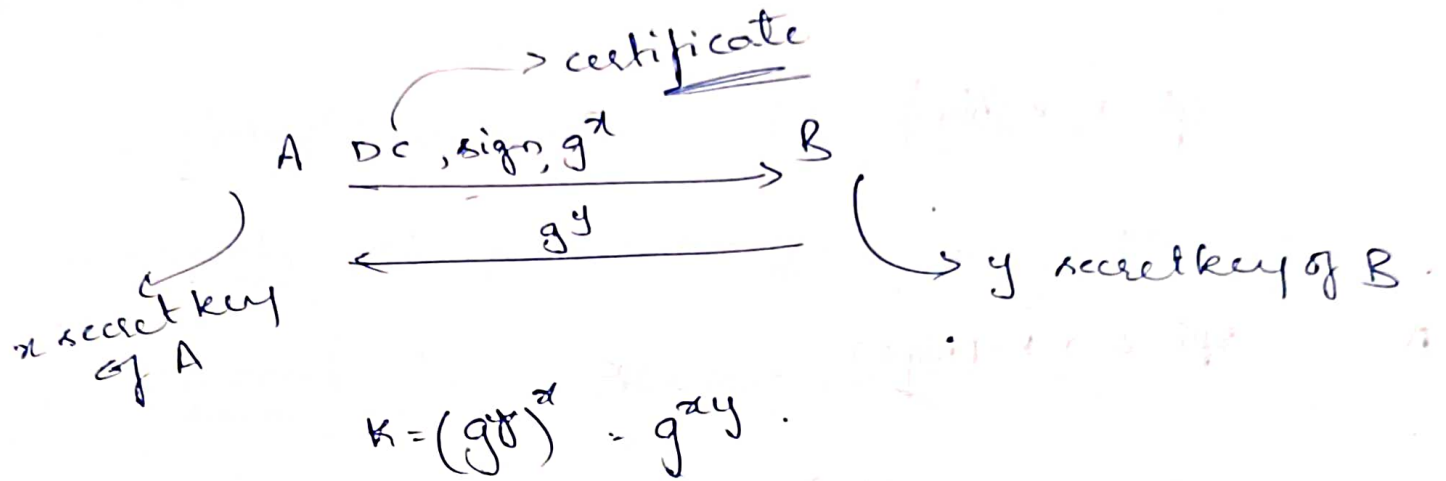 certificate
A DC, sign, g^x B
g^y
x secret key
of A
y secret key of B.
K = (g^y)^x = g^xy.